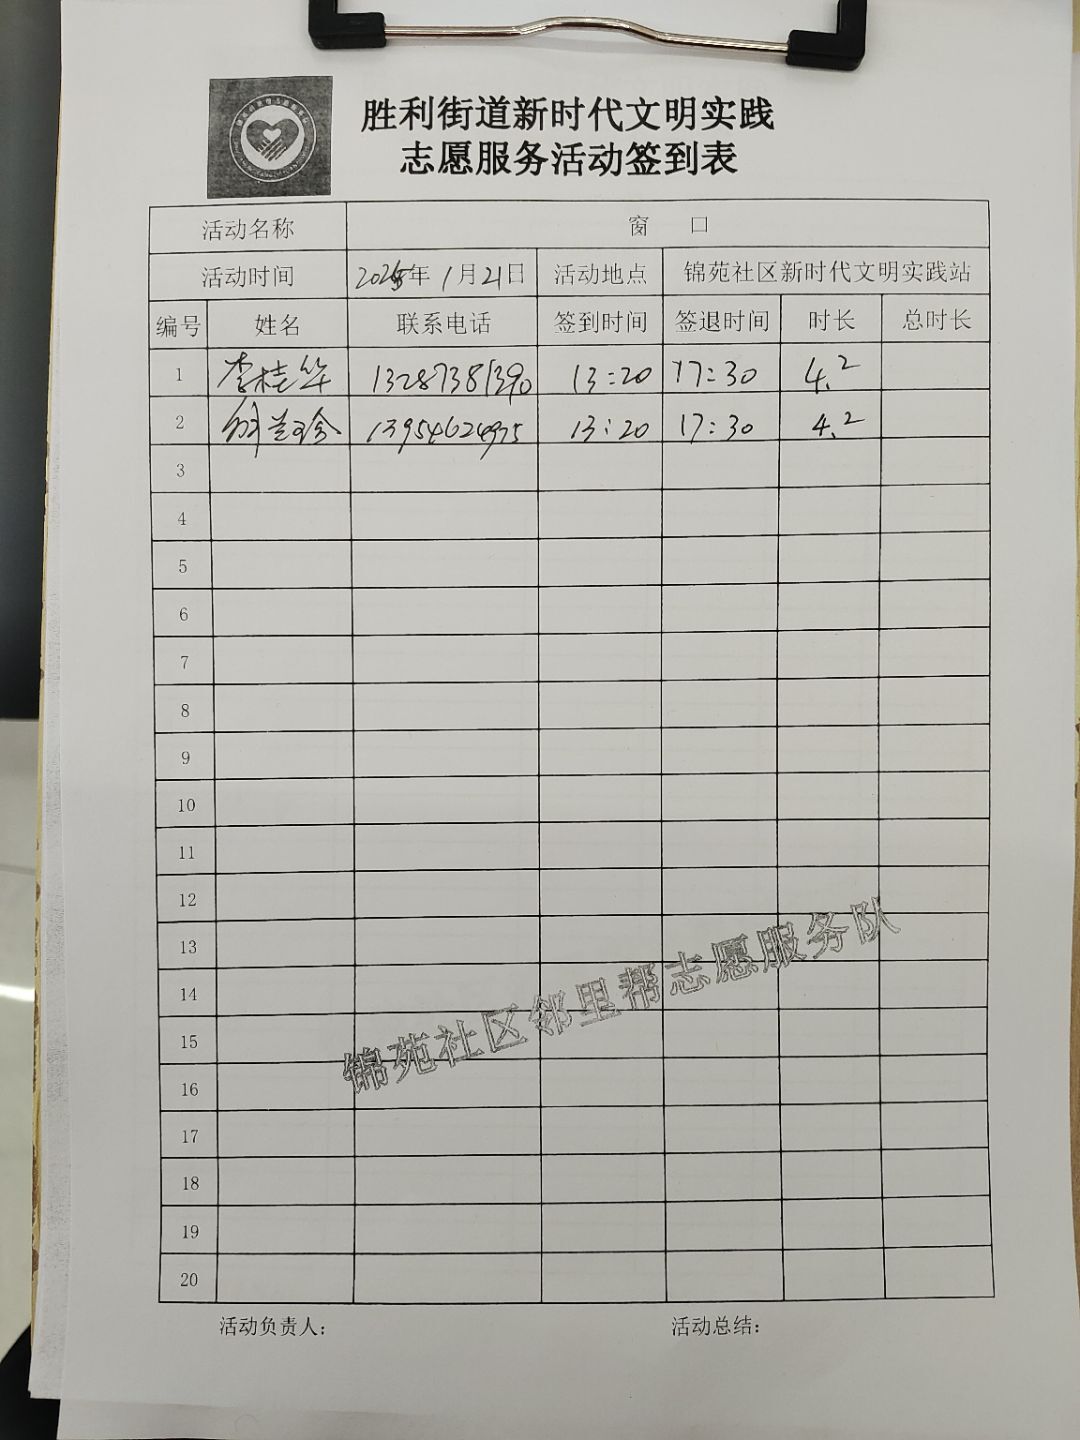 胜利街道新时代文明实践
志愿服务活动签到表
活动名称 窗 口
活动时间 2025年 1月21日 活动地点 锦苑社区新时代文明实践站
编号 姓名 联系电话 签到时间 签退时间 时长 总时长
1 李桂华 13287381390 13:20 17:30 4.2
2 兰珍 13954624975 13:20 17:30 4.2
3
4
5
6
7
8
9
10
11
12
13
14
15
16
17
18
19
20
锦苑社区邻里帮志愿服务队
活动负责人: 活动总结: